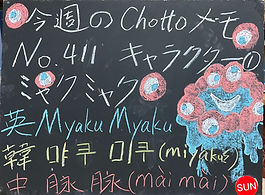 今週のChottoメモ
No.411 キャラクターの
ミャクミャク
英 Myaku Myaku
韓 먀쿠 미쿠 (miyaku)
中 脉 脉 (mài mai)
SUN